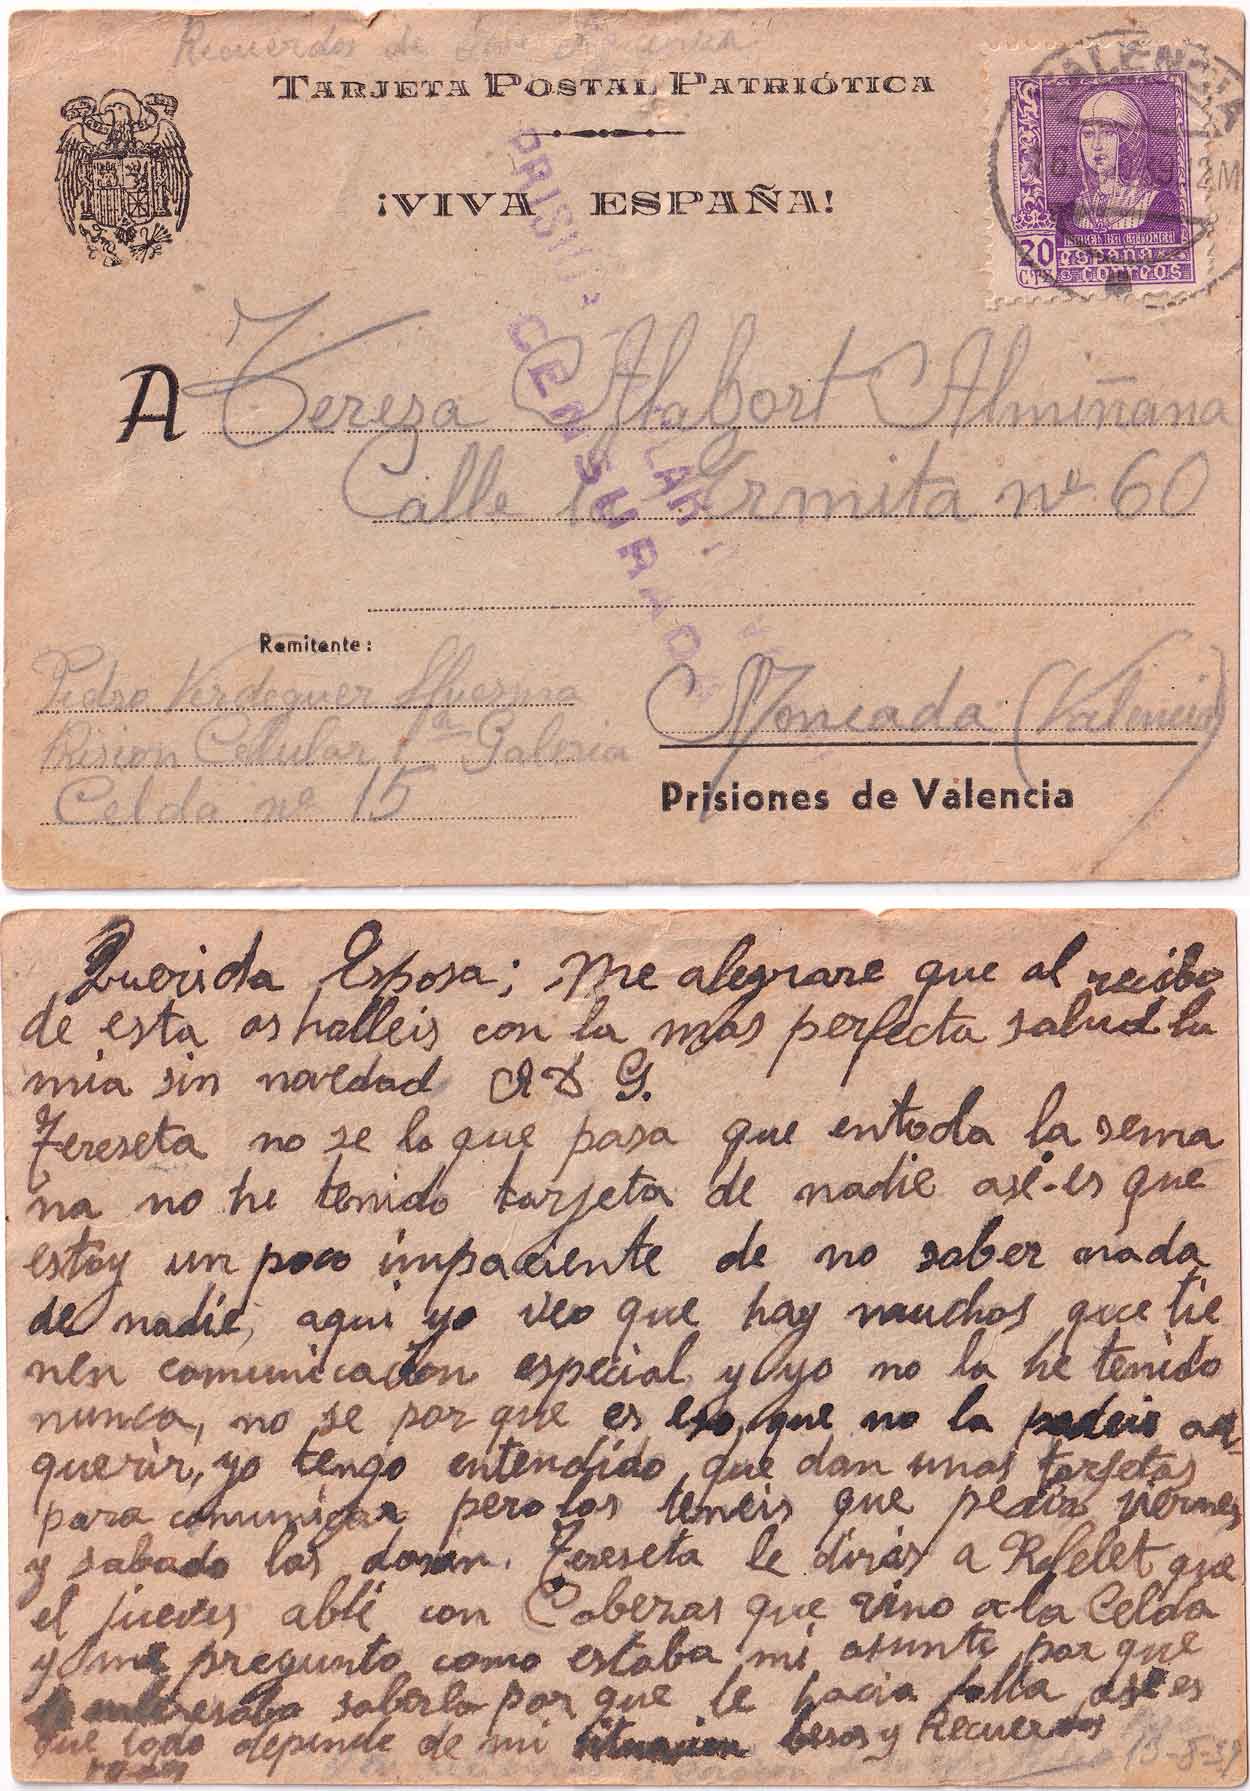 Recuerdos de
TARJETA POSTAL PATRIÓTICA
¡VIVA ESPAÑA!
VALENCIA
12M
ISABEL LA CATOLICA
20 CTS
ESPAÑA
CORREOS
CENSURADO
A Tereza Alabort Almiñana
Calle la Ermita nº 60
Remitente:
Pedro Verdeguer
Prision Celular 1ª Galeria
Celda nº 15
Moncada (Valencia)
Prisiones de Valencia
Querida Esposa; Me alegrare que al recibo
de esta os halleis con la mas perfecta salud la
mia sin novedad A D G.
Tereseta no se lo que pasa que entoda la sema
na no he tenido tarjeta de nadie asi-es que
estoy un poco impaciente de no saber nada
de nadie, aqui yo veo que hay muchos que tie
nen comunicacion especial y yo no la he tenido
nunca, no se por que es eso que no la podeis ad-
querir, yo tengo entendido que dan unas tarjetas
para comunicar pero las teneis que pedir viernes
y sabado las dosan. Tereseta le diras a Rafelet que
el jueves ablé con Caberas que vino a la Celda
y me pregunto como estaba mi asunto por que
saberlo por que le hacia falta asi es
que todo depende de mi situacion besos y Recuerdos